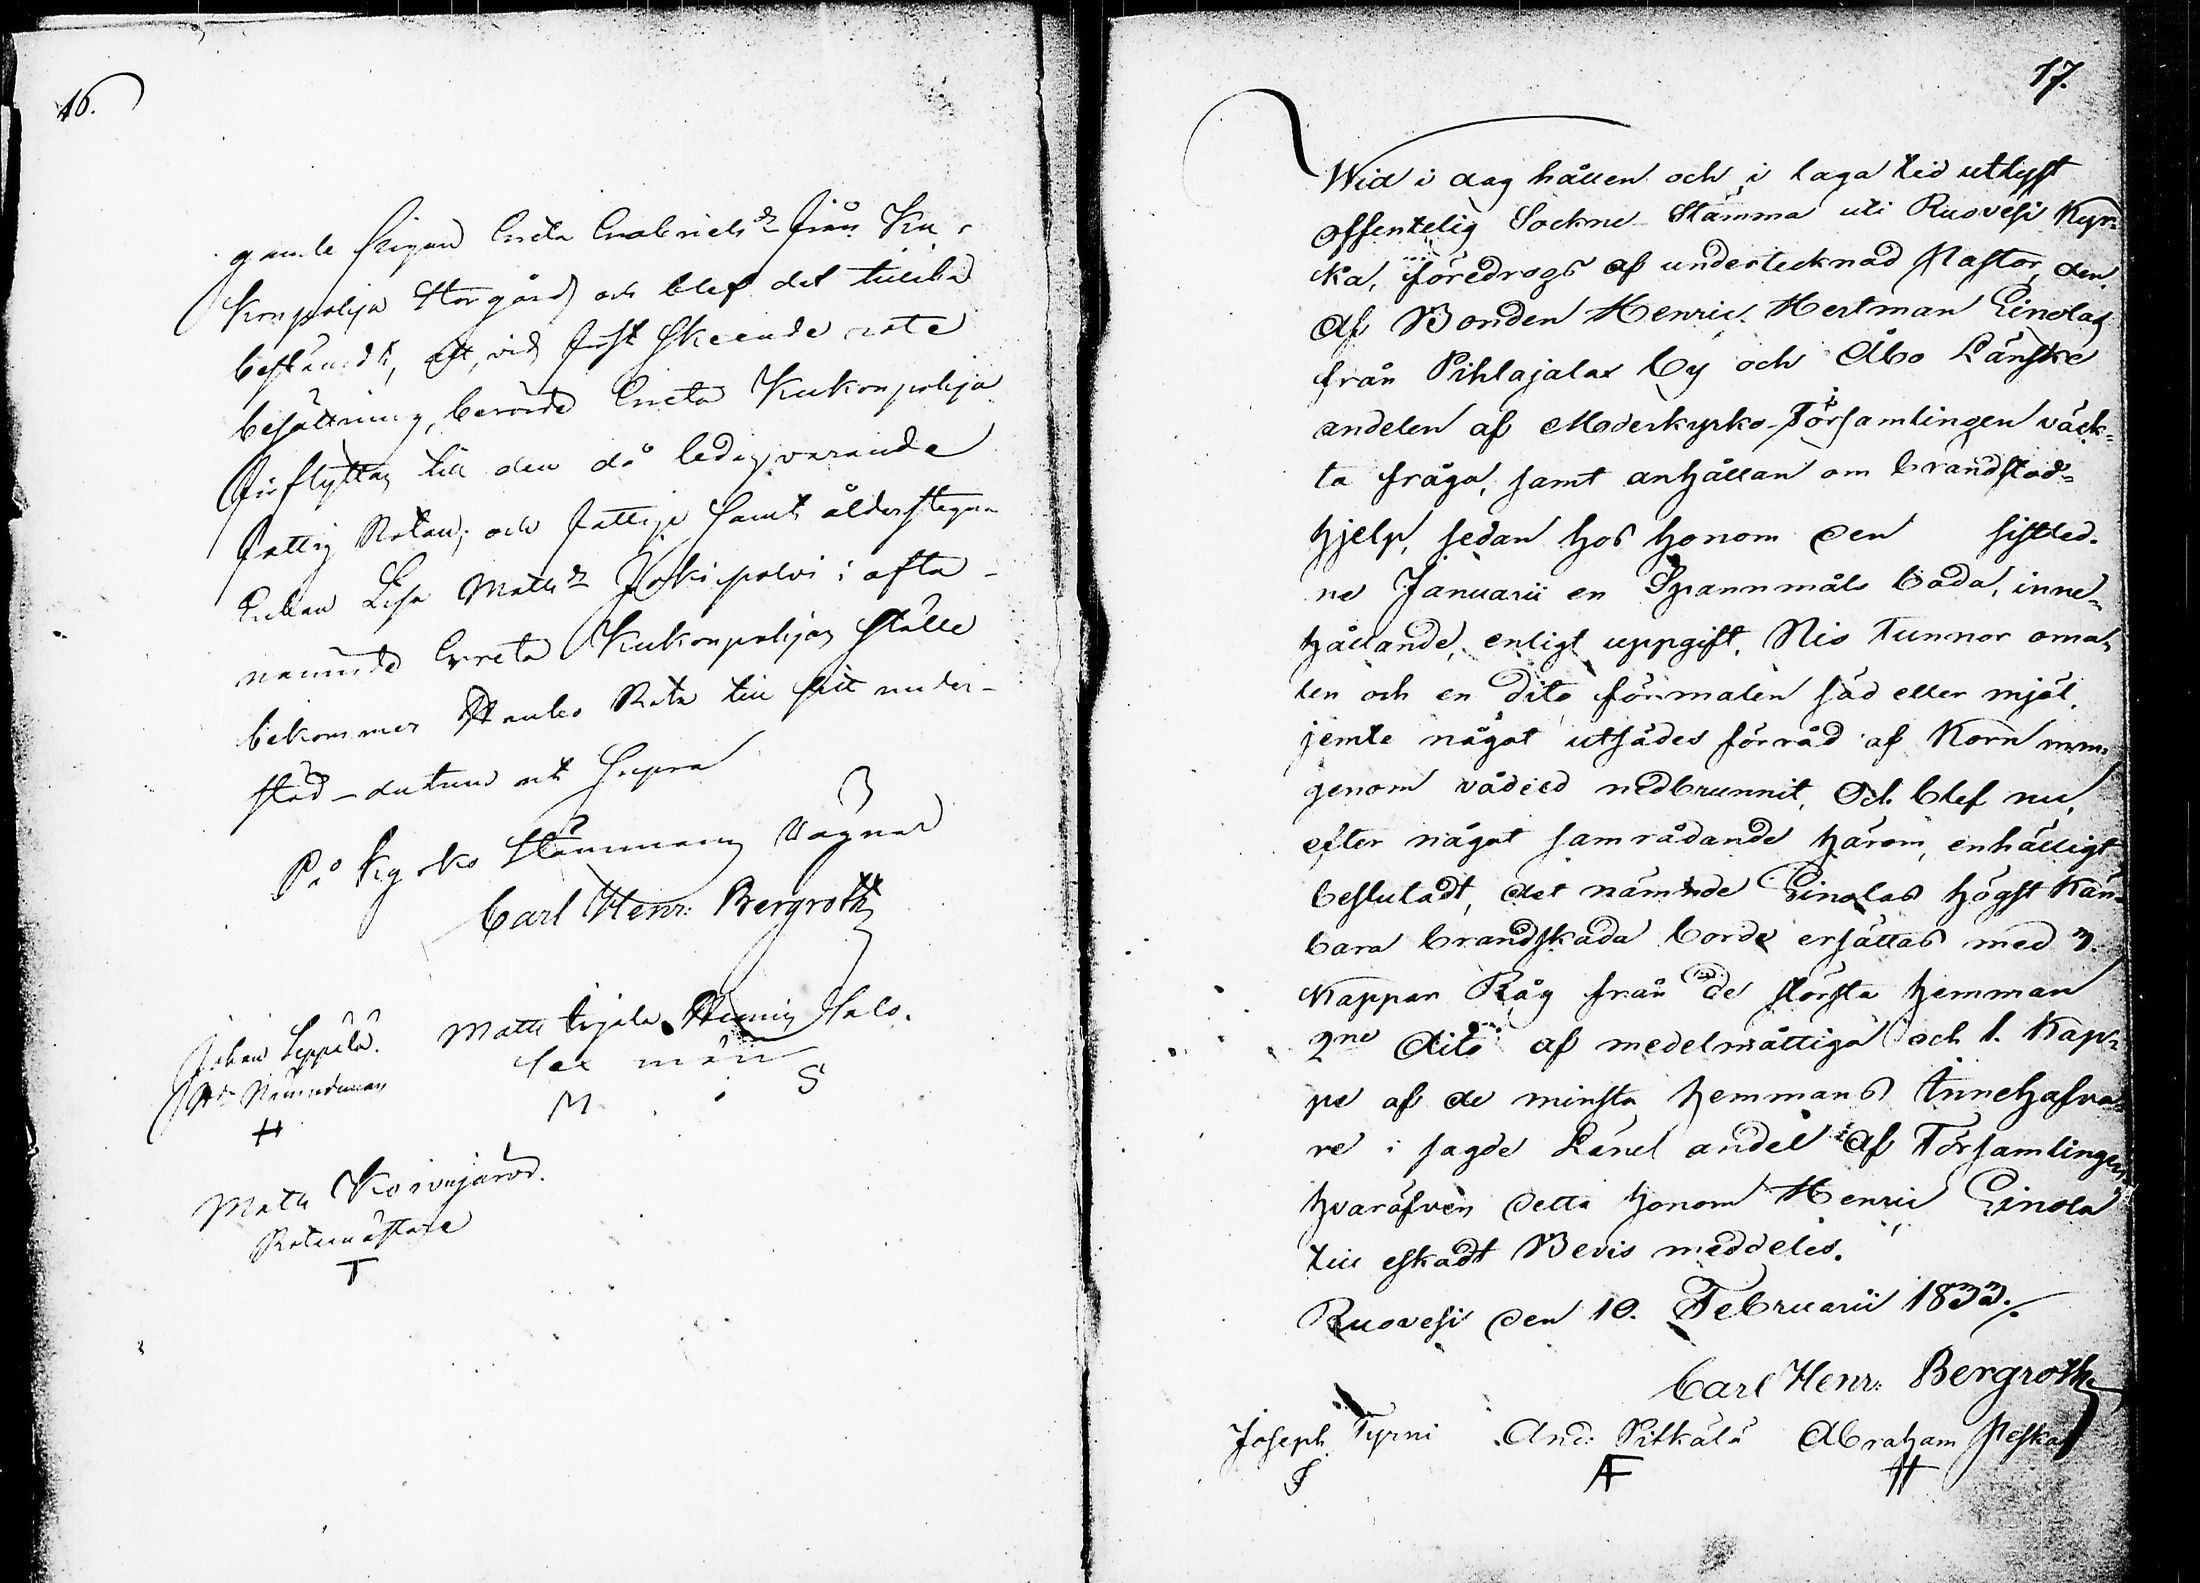 16.
gamle Pigan Greta Gabriels dr från Ku-
konpohja Storgård, och blef det tillika
bestämdt, att, vid först skeende rote
besättning, berörde Greta Kukonpohja
förflyttas till den då ledigvarande
fattig Rotan; och fattige samt ålderstegne
Enkan Lisa Matts dr Jokipolvi i ofta-
nämnde Greta Kukonpohjas ställe
bekommer Rota till sitt under-
stöd – datum ut supra
På Kyrko Stämmans vägnar
Carl Henr: Bergroth
Johan Leppälä. Matts Hennig Salo.
Nämndeman Sex män
H M S
Matts Koivujärvi.
Rotemästare
T
17.
Wid i dag hållen och i laga tid utlyst
offentelig Sockne Stämma uti Ruovesi Kyr=
ka, föredrogs af undertecknad Pastor, den
af Bonden Henric Hertman Einolas
från Pihlajalax by och Åbo Länske
andelen af Moderkyrko-Församlingen väck=
ta fråga, samt anhållan om brandstod=
hjelp, sedan hos honom den sistled.
ne Januarii en Spannmåls boda, inne=
hållande, enligt uppgift, Nio Tunnor oma=
len och en dito förmalen säd eller mjöl,
jemte något utsädes förråd af Korn
genom vådeld nedbrunnit, Och blef nu,
efter något samrådande härom, enhälligt
beslutadt, det nämnde Einolas högst kän=
bara brandskada borde ersättas med 3.
Kappar Råg från de största hemman
2ne dito af medelmåttiga och 1. Kap=
pe af de minsta hemmans Innehafva=
re i sagde Länel andel af Församlingen,
hvaröfven detta honom Henric Einola
till eskadt Bevis meddeles.
Ruovesi den 10. Februarii 1833./.
Carl Henr: Bergroth
Joseph Tyrni And: Pitkälä Abraham Peska
J AF H